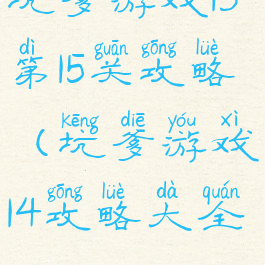 坑爹游戏15
dì guān gōng lüè
第15关攻略
kēng diē yóu xì
(坑爹游戏
gōng lüè dà quán
14攻略大全